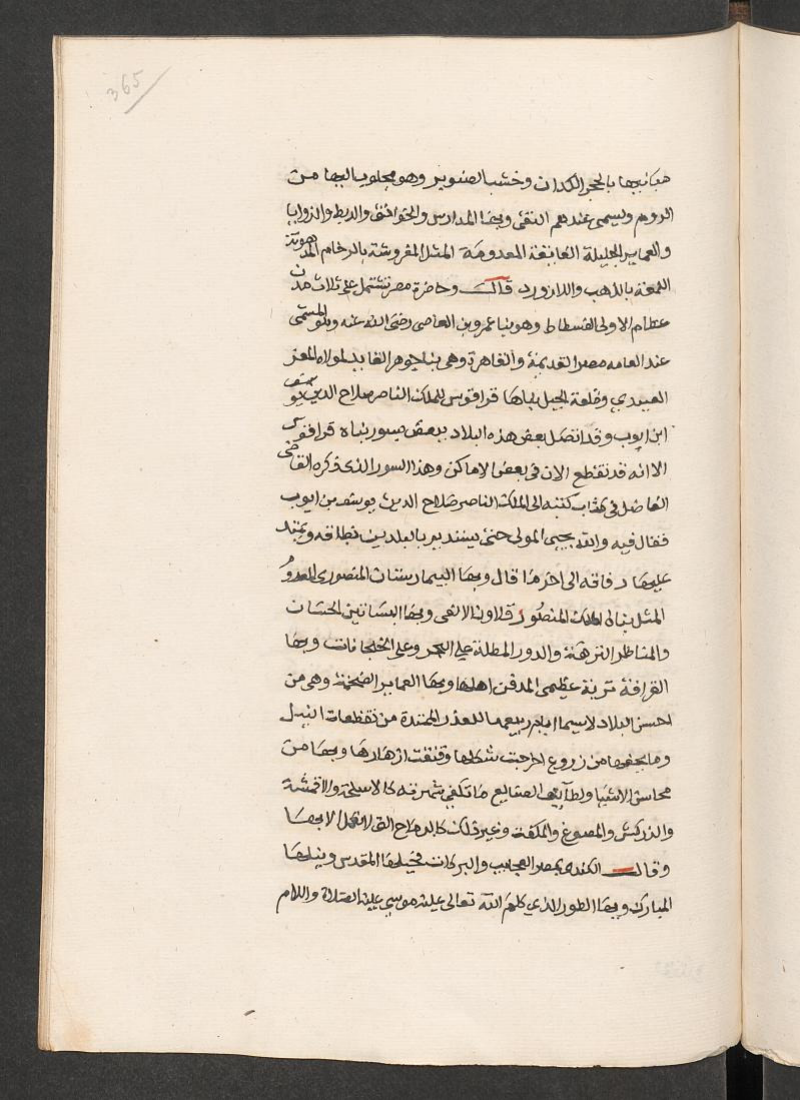 365
مبانيها بالحجر الكدان وخشب الصنوبر وهو مجلوب اليها من
الروم ويسمى عندهم النقى وبها المدارس والخوانق والربط والزوايا
والعماير الجليلة الفايقة المعدومة المثل المفروشة بالرخام المدهونة
اللمعة بالذهب واللازورد قال وحاضرة مصر تشتمل على ثلاث مدن
عظام الاولى الفسطاط وهو بنا عمرو بن العاصى رضى الله عنه وهو المسمى
عند العامه مصر القديمة والقاهرة وهى بنا جوهر القايد لمولاه المعز
العبيدى وقلعة الجبل بناها قراقوس للملك الناصر صلاح الدين يوسف
ابن ايوب وقد اتصل بعض هذه البلاد ببعض بسور بناه قراقوس
الا انه قد تقطع الان فى بعض الاماكن وهذا السور الذى ذكره القاضى
الفاضل فى كتاب كتبه الى الملك الناصر صلاح الدين يوسف بن ايوب
فقال فيه والله يحيى المولى حتى يستدير بالبلدين نطاقه ويمتد
عليهما رفاقه الى اخر ما قال وبها البيمارستان المنصورى المعدوم
المثل بنا الملك المنصور قلاون الالفى وبها البساتين الحسان
والمناظر النزهة والدور المطلة على البحر وعلى الخلجانات وبها
القرافة تربة عظيمى المدفن اهلها وبها العماير الضخمة وهى من
احسن البلاد لا سيما ايام ربيعها للغدر الممتدة من تقطعات النيل
وما يحفها من زروع اخرجت شطاها وفتقت ازهارها وبها من
محاسن الاشيا ولطايف الصنايع ما تكفى شهرته كالاسلحة والاقمشة
والزركش والمصوغ والكفت وغير ذلك كالرماح التى لا تعمل الا بها
وقال الكندى بمصر العجايب والبركات فجبلها المقدس ونيلها
المبارك وبها الطور الذي كلم الله تعالى عليه موسى عليه الصلاة والسلام